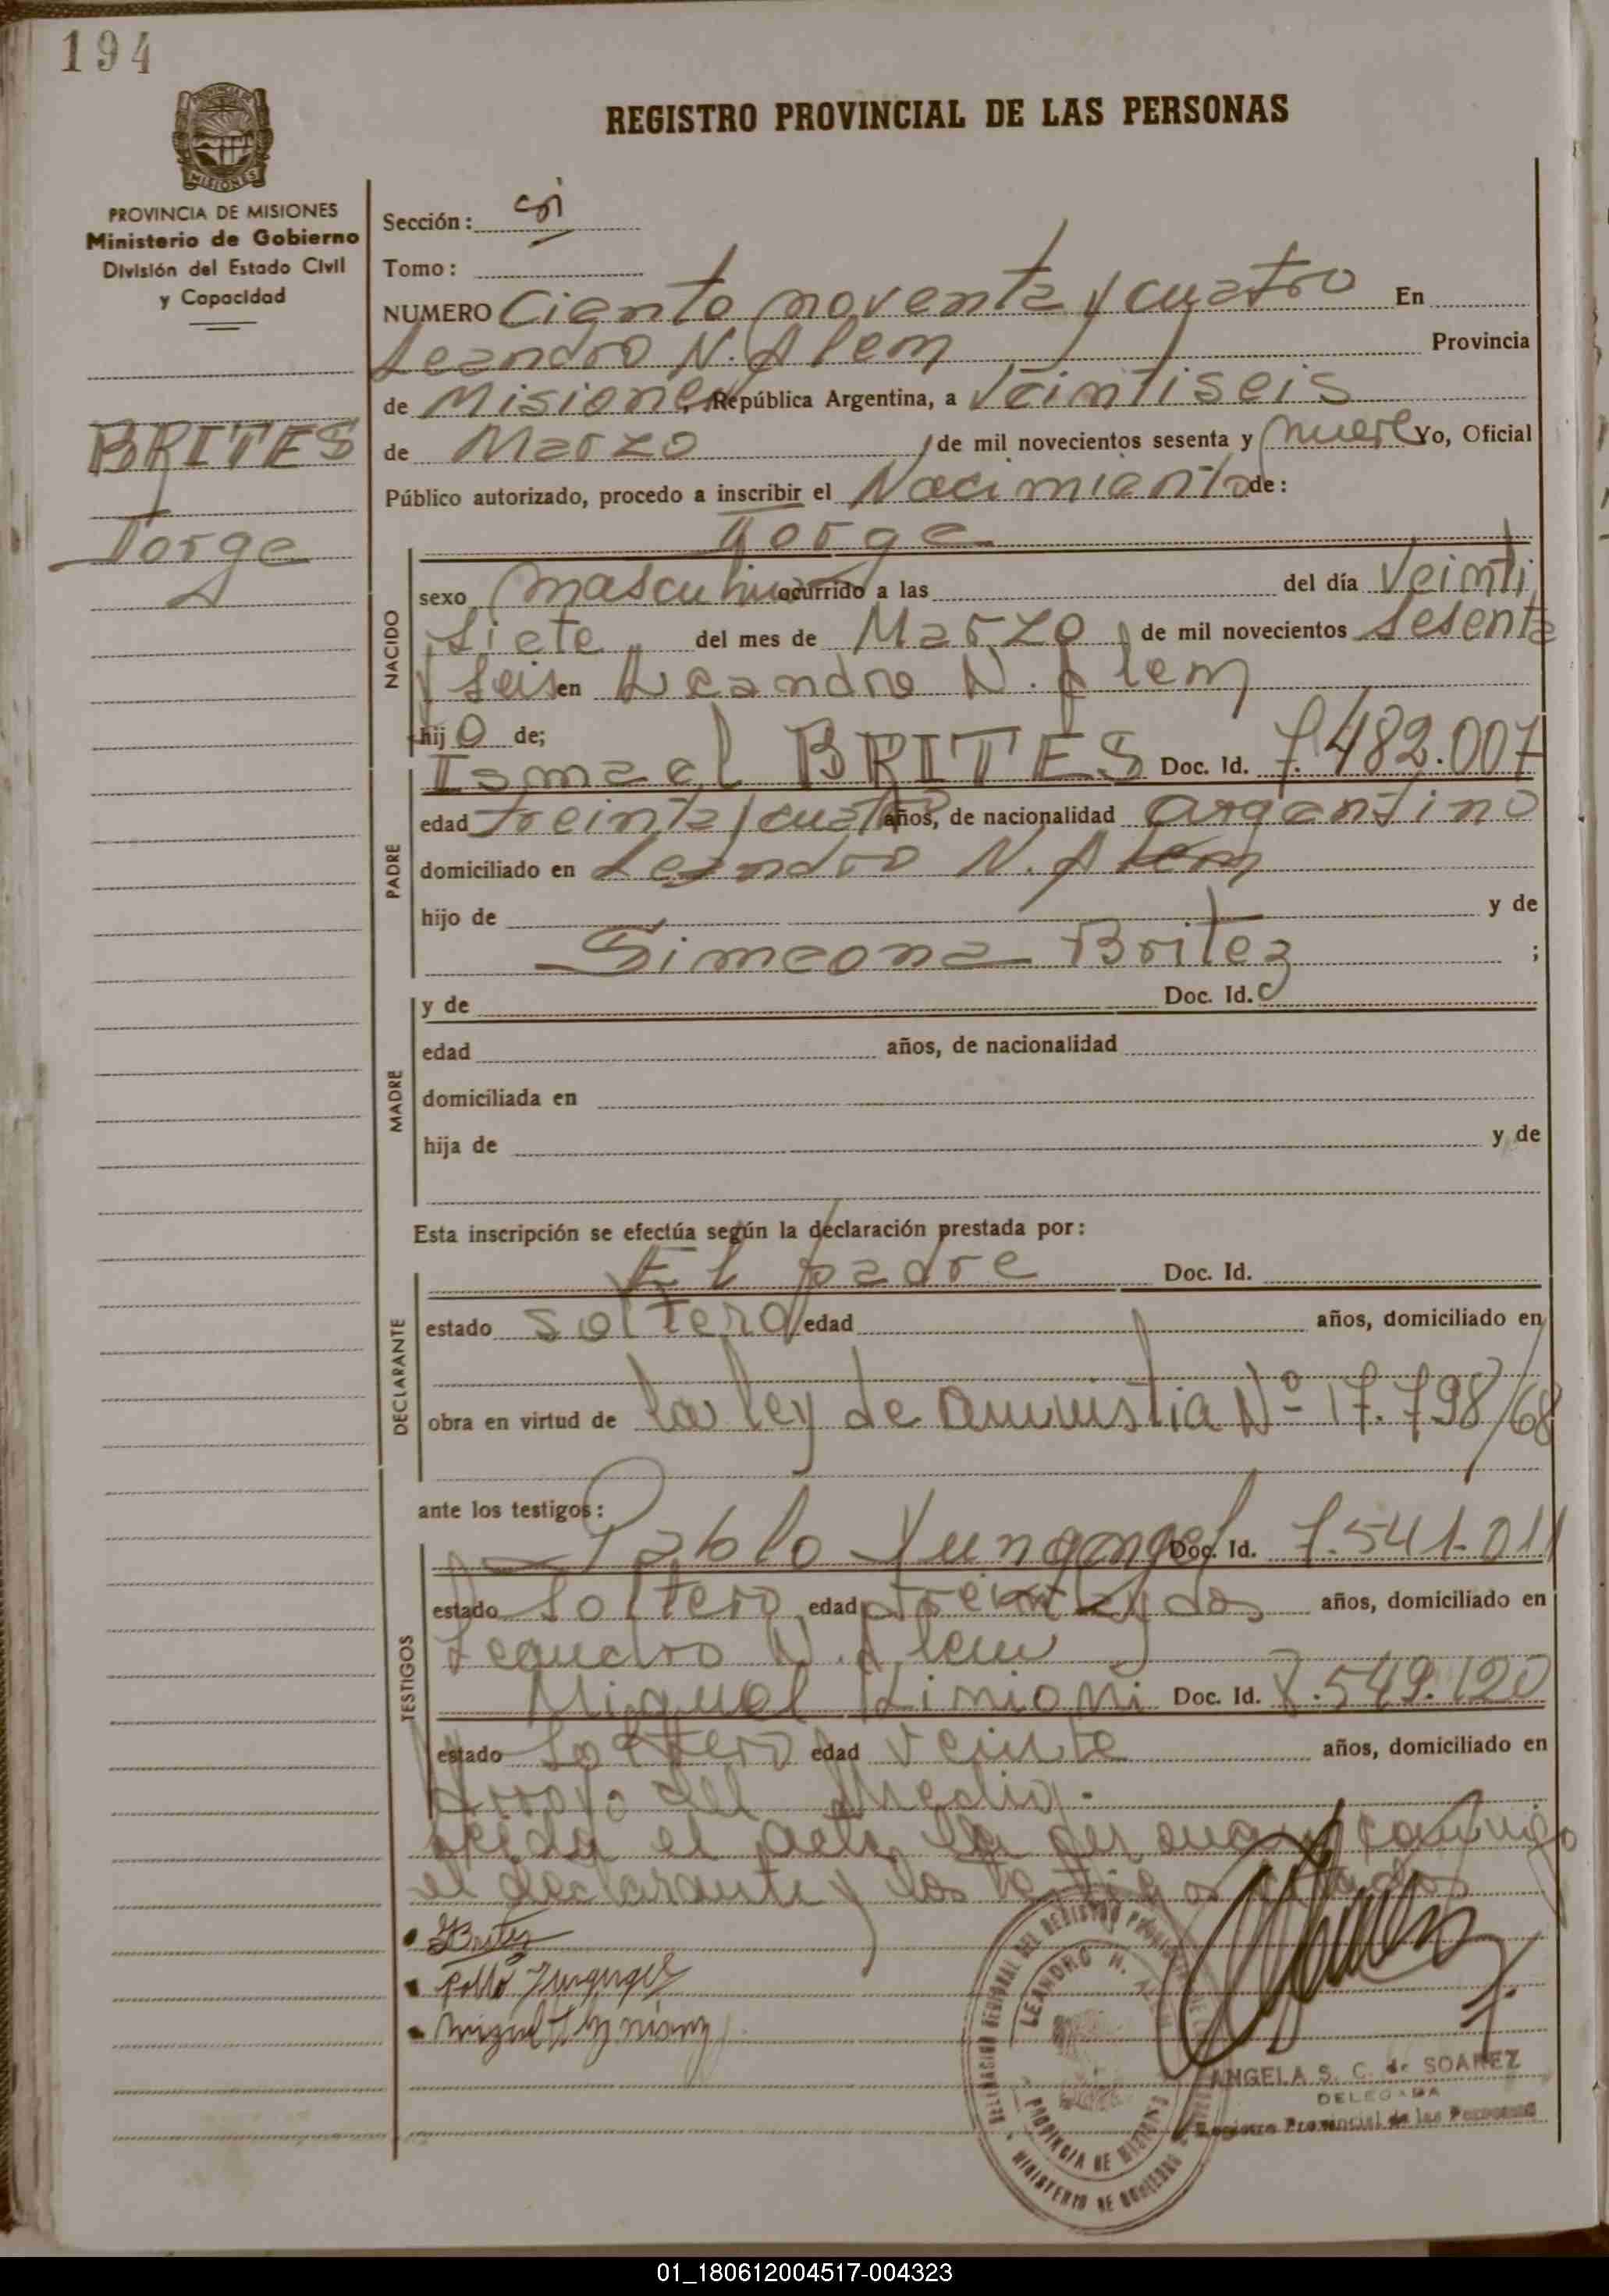 194
REGISTRO PROVINCIAL DE LAS PERSONAS
MISIONES
PROVINCIA DE MISIONES
Ministerio de Gobierno
División del Estado Civil
y Capacidad
BRITES
Jorge
Sección:
Tomo:
NUMERO Ciento noventa y cuatro En
Leandro N. Alem Provincia
de Misiones, República Argentina, a Veintiseis
de Marzo de mil novecientos sesenta y nueve Yo, Oficial
Público autorizado, procedo a inscribir el Nacimiento de:
Jorge
NACIDO
sexo masculino ocurrido a las del día Veinti
siete del mes de Marzo de mil novecientos sesenta
y seis en Leandro N. Alem
hijo de;
PADRE
Ismael BRITES Doc. Id. 7.482.007
edad treinta y cuatro años, de nacionalidad argentino
domiciliado en Leandro N. Alem
hijo de y de
Simeona Britez ;
MADRE
y de Doc. Id.
edad años, de nacionalidad
domiciliada en
hija de y de
Esta inscripción se efectúa según la declaración prestada por:
DECLARANTE
El padre Doc. Id.
estado soltero edad años, domiciliado en
obra en virtud de la ley de amnistia Nº 17.798/68
ante los testigos:
TESTIGOS
Pablo Yungangel Doc. Id. 7.541.011
estado soltero edad treinta y dos años, domiciliado en
Leandro N. Alem
Miguel Doc. Id. 7.549.120
estado soltero edad veinte años, domiciliado en
Arroyo del Medio.
Leida el acta la firman conmigo
el declarante y los testigos citados
Brites
LEANDRO N. ALEM
PROVINCIA DE MISIONES
MINISTERIO DE GOBIERNO
ANGELA S. C. de SOAREZ
DELEGADA
Registro Provincial de las Personas
01_180612004517-004323